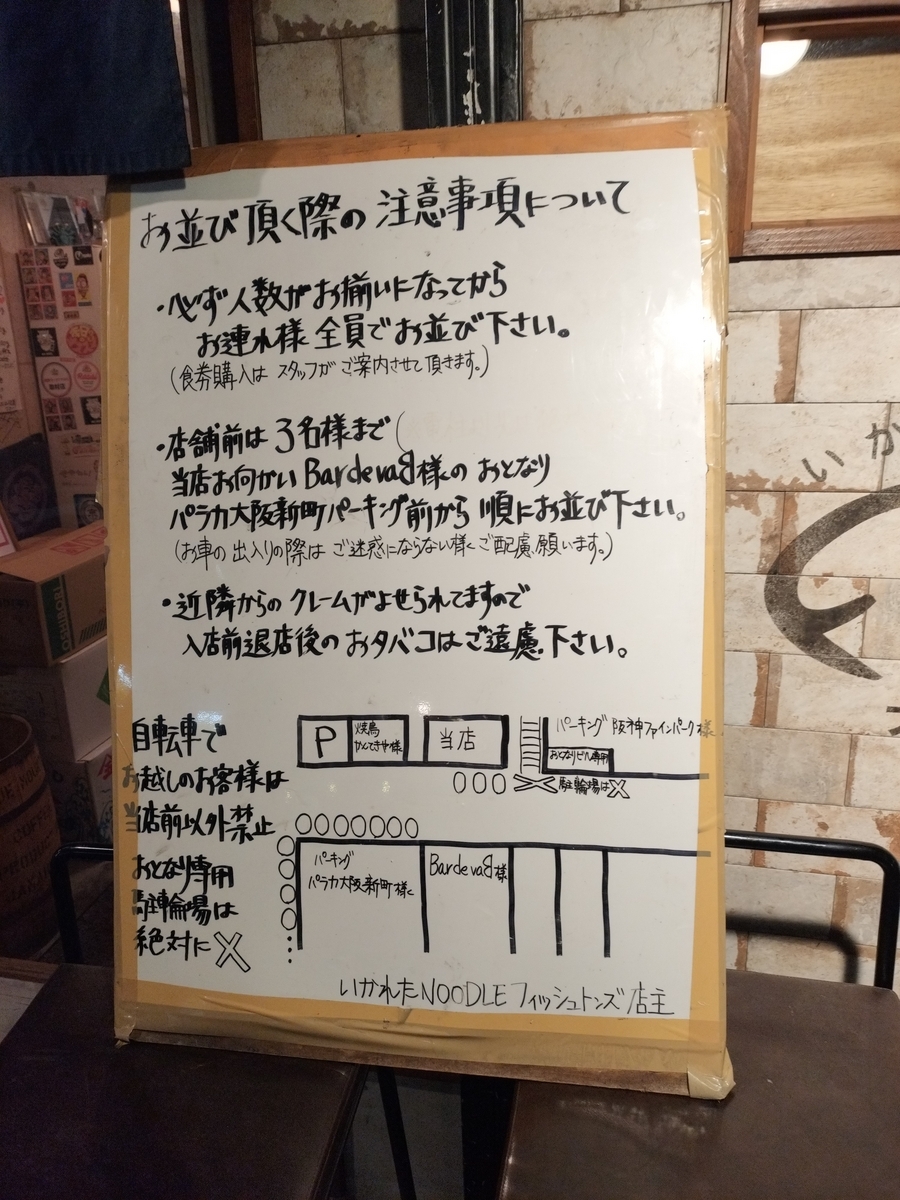 お並び頂く際の注意事項について
・必ず人数がお揃いになってから
お連れ様全員でお並び下さい。
(食券購入はスタッフがご案内させて頂きます。)
・店舗前は3名様まで(
当店お向かいBardevaB様のおとなり
パラカ大阪新町パーキング前から順にお並び下さい。
(お車の出入りの際はご迷惑にならない様ご配慮願います。)
・近隣からのクレームがよせられてますので
入店前退店後のおタバコはご遠慮下さい。
自転車で
お越しのお客様は
当店前以外禁止
おとなり専用
駐輪場は
絶対に✕
P
焼鳥
かんてきや様
当店
パーキング 阪神ファインパーク様
おとなりビル専用
駐輪場は✕
パーキング
パラカ大阪新町様
BardevaB様
いかれたNOODLEフィッシュトンズ店主
いか